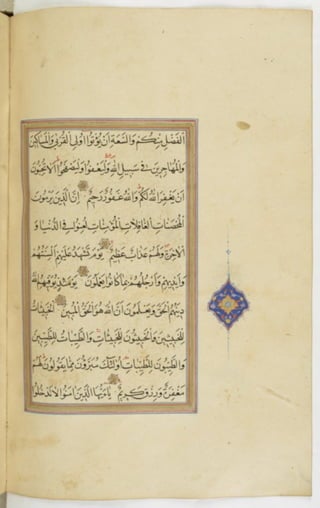 اَلْفَضْلِ مِنْكُمْ وَالسَّعَةِ اَنْ يُؤْتُوا اُولِى الْقُرْبٰى وَالْمَسَاكِينَ
وَالْمُهَاجِرِينَ فِى سَبِيلِ اللهِ وَلْيَعْفُوا وَلْيَصْفَحُوا اَلَا تُحِبُّونَ
اَنْ يَغْفِرَ اللهُ لَكُمْ وَاللهُ غَفُورٌ رَحِيمٌ اِنَّ الَّذِينَ يَرْمُونَ
الْمُحْصَنَاتِ الْغَافِلَاتِ الْمُؤْمِنَاتِ لُعِنُوا فِى الدُّنْيَا وَ
الْاٰخِرَةِ وَلَهُمْ عَذَابٌ عَظِيمٌ يَوْمَ تَشْهَدُ عَلَيْهِمْ اَلْسِنَتُهُمْ
وَاَيْدِيهِمْ وَاَرْجُلُهُمْ بِمَا كَانُوا يَعْمَلُونَ يَوْمَئِذٍ يُوَفِّيهِمُ اللهُ
دِينَهُمُ الْحَقَّ وَيَعْلَمُونَ اَنَّ اللهَ هُوَ الْحَقُّ الْمُبِينُ اَلْخَبِيثَاتُ
لِلْخَبِيثِينَ وَالْخَبِيثُونَ لِلْخَبِيثَاتِ وَالطَّيِّبَاتُ لِلطَّيِّبِينَ
وَالطَّيِّبُونَ لِلطَّيِّبَاتِ اُولٰئِكَ مُبَرَّؤُنَ مِمَّا يَقُولُونَ لَهُمْ
مَغْفِرَةٌ وَرِزْقٌ كَرِيمٌ يَا اَيُّهَا الَّذِينَ اٰمَنُوا لَا تَدْخُلُوا